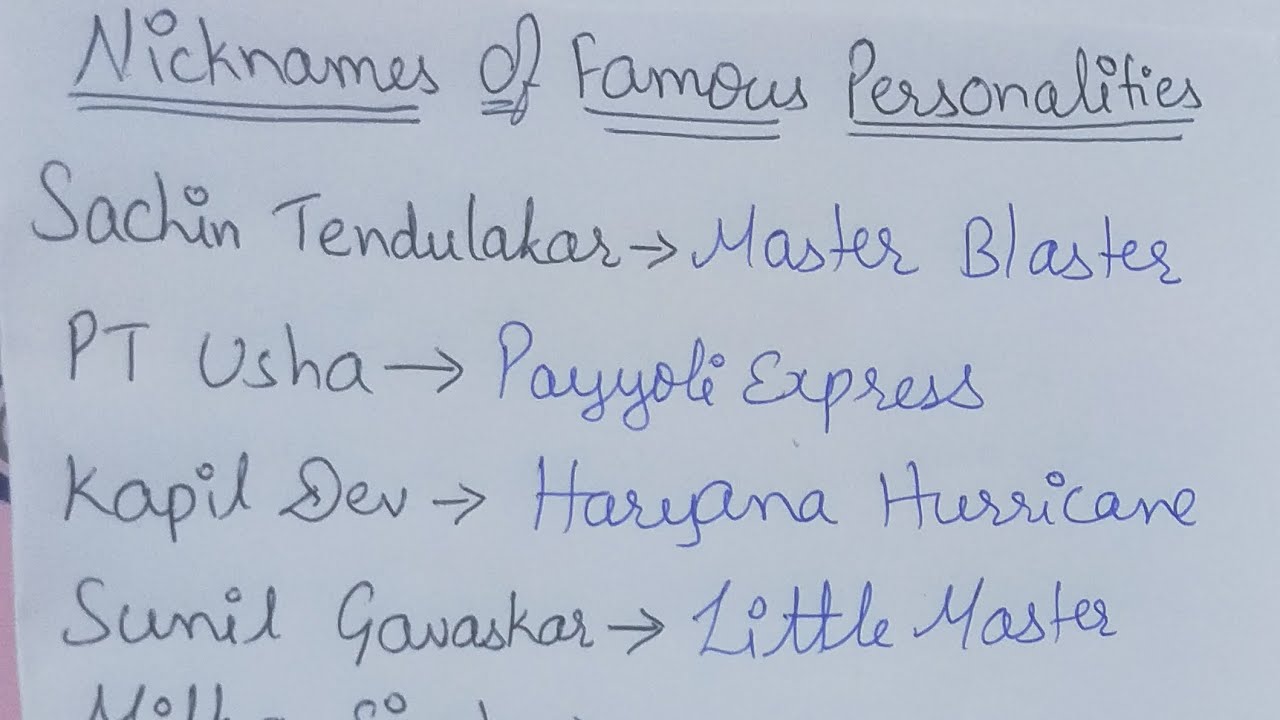 Nicknames of Famous Personalities
Sachin Tendulakar → Master Blaster
PT Usha → Payyoli Express
Kapil Dev → Haryana Hurricane
Sunil Gavaskar → Little Master